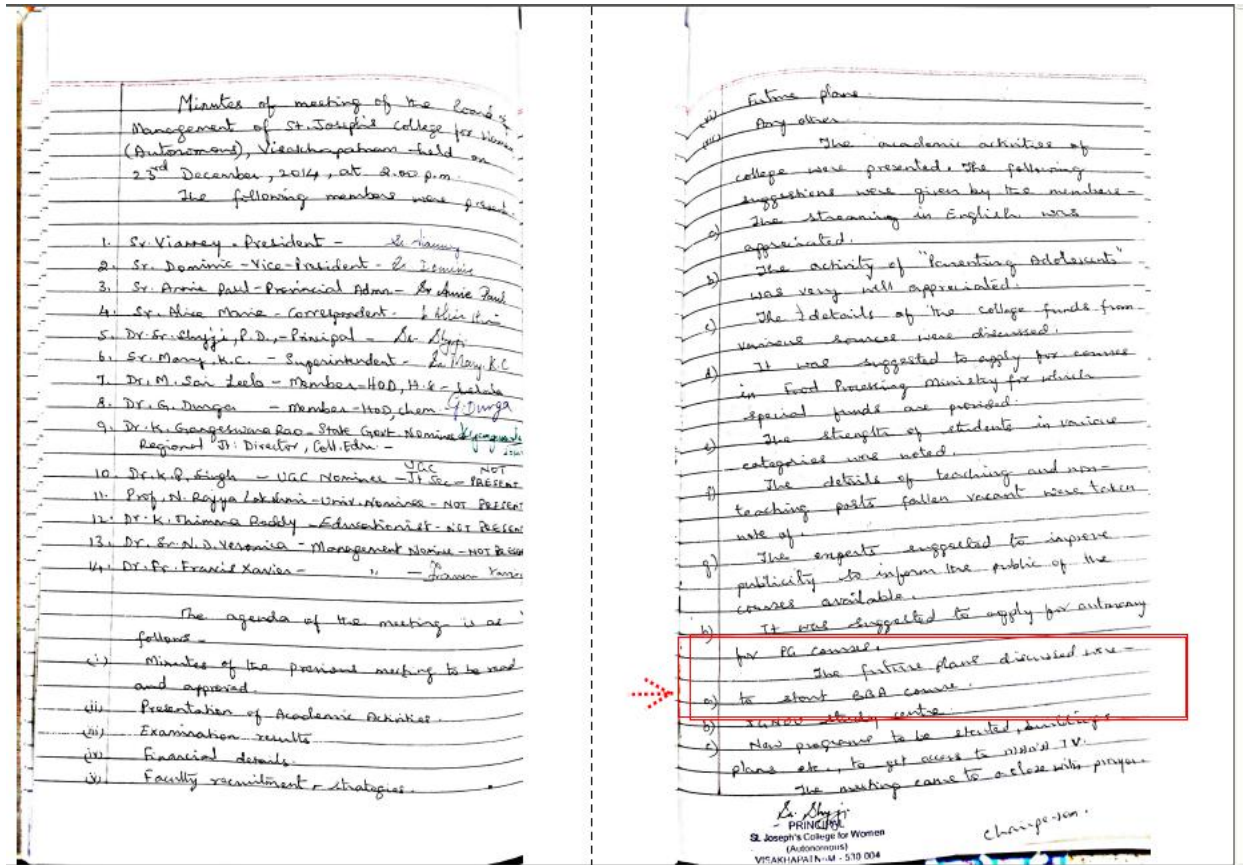 Minutes of meeting of the Board of
Management of St. Joseph's College for Women
(Autonomous), Visakhapatnam held on
23rd December, 2014, at 2.00 p.m.
The following members were present.
1. Sr. Vianney - President -
2. Sr. Dominic - Vice-President - Sr Dominic
3. Sr. Annie Paul - Provincial Admn - Sr Annie Paul
4. Sr. Alice Maria - Correspondent -
5. Dr. Sr. Shyji, P.D., - Principal - Sr. Shyji
6. Sr. Mary, K.C. - Superintendent - Sr. Mary. K.C
7. Dr. M. Sai Leela - Member - HOD, H.Sc -
8. Dr. G. Durga - Member - HoD, Chem. G. Durga
9. Dr. K. Gangeswara Rao - State Govt Nominee
Regional Jt: Director, Coll. Edn. -
10. Dr. K.P. Singh - UGC Nominee - UGC Jt Sec - NOT PRESENT
11. Prof. N. Rajya Lakshmi - Univ. Nominee - NOT PRESENT
12. Dr. K. Thimma Reddy - Educationist - NOT PRESENT
13. Dr. Sr. N.D. Veronica - Management Nomine - NOT PRESENT
14. Dr. Fr. Francis Xavier - " -
The agenda of the meeting is as
follows -
(i) Minutes of the previous meeting to be read
and approved.
(ii) Presentation of Academic Activities.
(iii) Examination results
(iv) Financial details.
(v) Faculty recruitment - strategies.
(vi) Future plans.
(vii) Any other.
The academic activities of
college were presented. The following
suggestions were given by the members -
a) The streaming in English was
appreciated.
b) The activity of "Parenting Adolescents"
was very well appreciated.
c) The details of the college funds from
various sources were discussed.
d) It was suggested to apply for courses
in Food Processing Ministry for which
special funds are provided.
e) The strength of students in various
categories was noted.
f) The details of teaching and non-
teaching posts fallen vacant were taken
note of.
g) The experts suggested to improve
publicity to inform the public of the
courses available.
h) It was suggested to apply for autonomy
for PG courses.
The future plans discussed were -
a) to start BBA course.
b) IGNOU study centre.
c) New programs to be started, buildings
plans etc., to get access to TV.
The meeting came to a close with prayer.
Sr. Shyji
PRINCIPAL
St. Joseph's College for Women
(Autonomous)
VISAKHAPATNAM - 530 004
Chairperson.